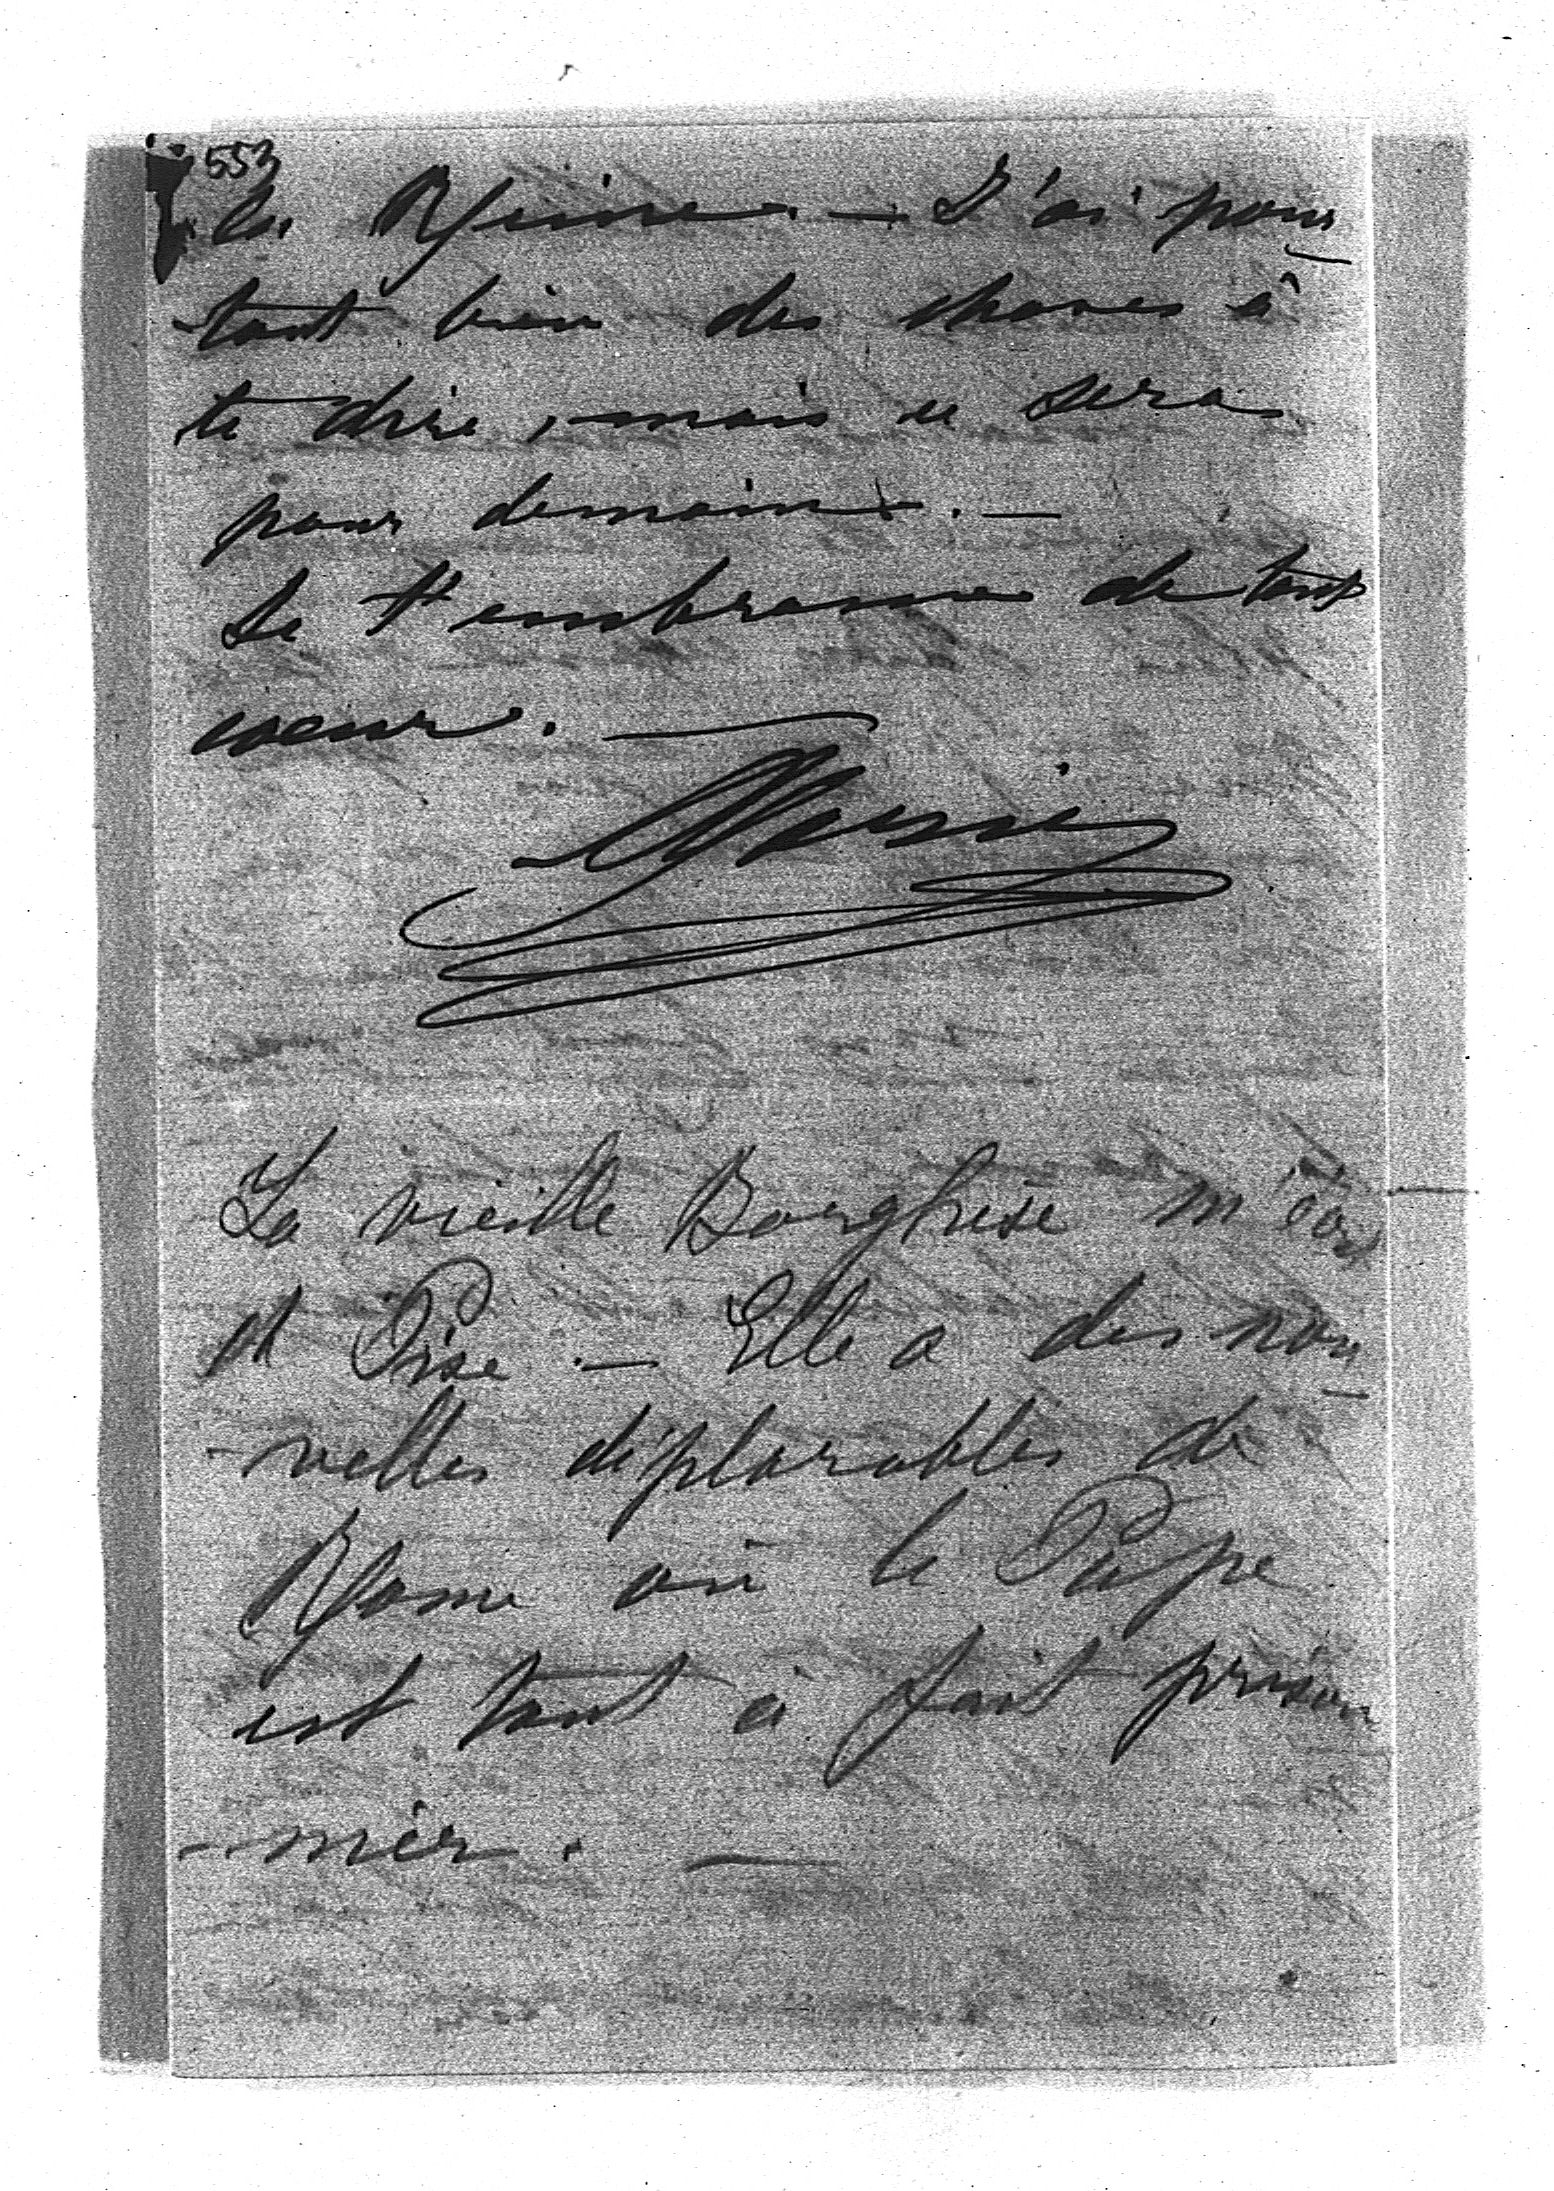 553
la Reine. — J'ai pour
tant bien des choses à
te dire, mais ce sera
pour demain. —
Je t'embrasse de tout
coeur. —
Marie
La vieille Borghèse m'écrit
Pise — Elle a des nou
-velles déplorables de
Rome où le Pape
est tout à fait prison
-nier. —